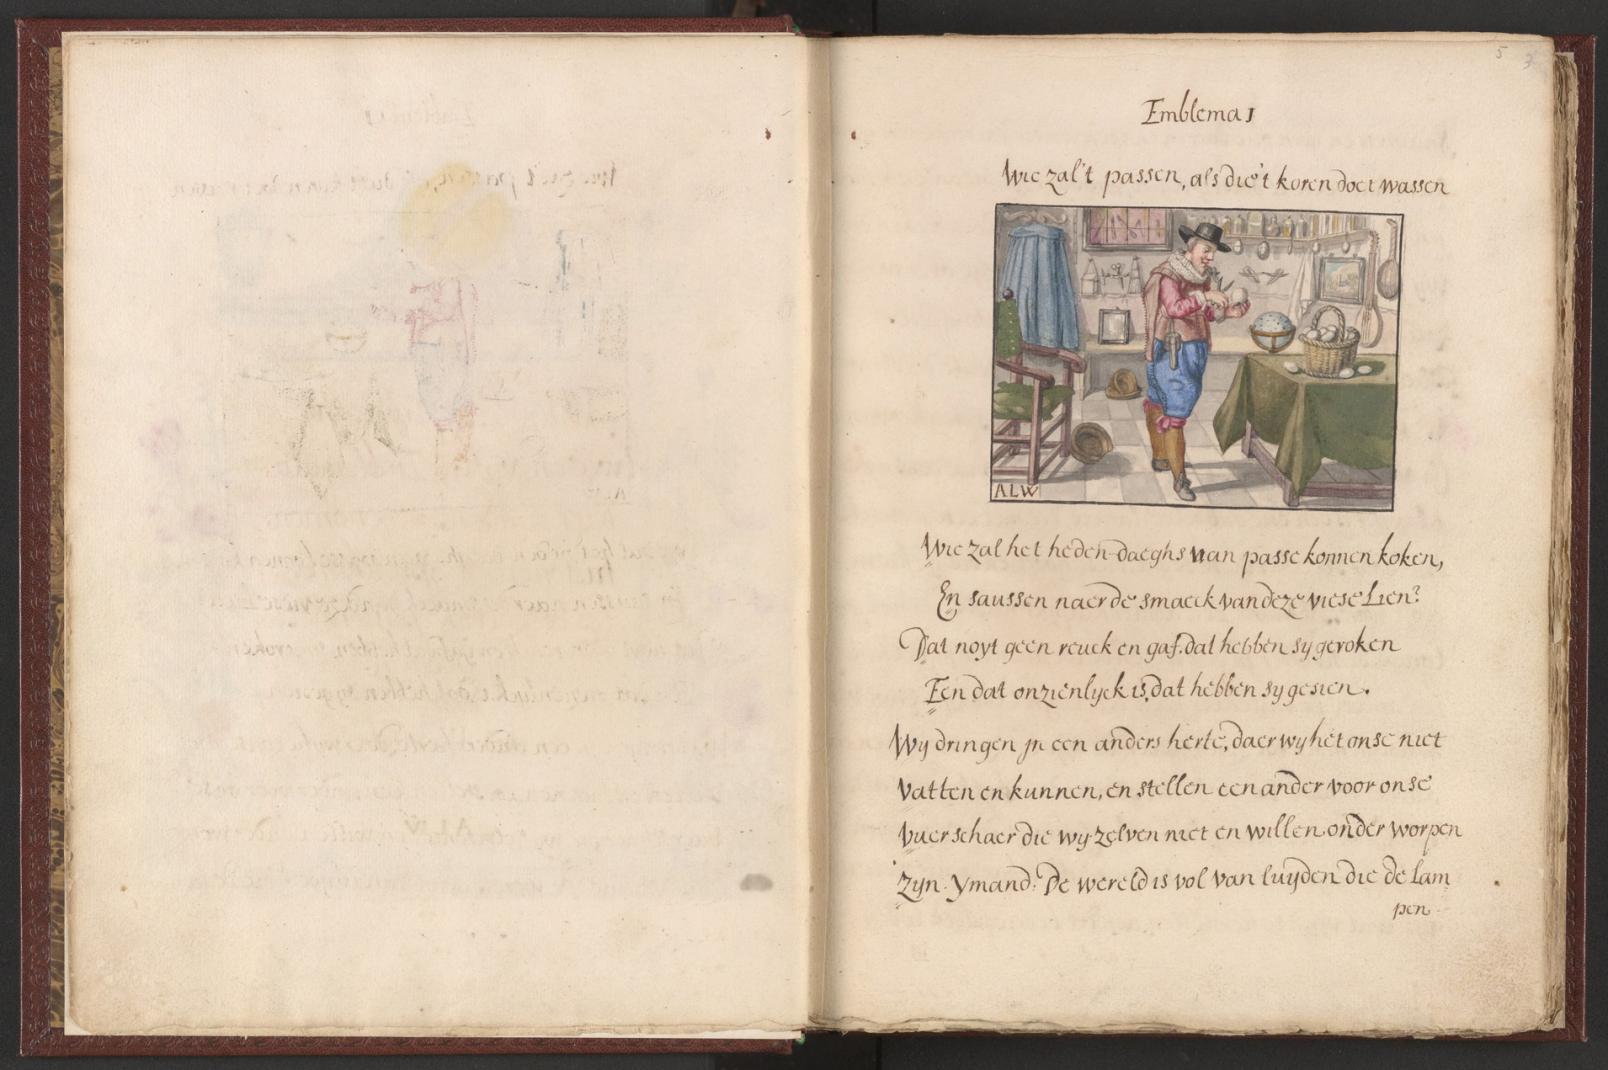 5 3
Emblema 1
Wie zal't passen, als die't koren doet wassen
ALW
Wie zal het heden-daeghs van passe konnen koken,
En saussen naer de smaeck van deze viese Lien?
Dat noyt geen reuck en gaf. dat hebben sy geroken
Een dat onzienlyck is, dat hebben sy gesien.
Wy dringen jn een anders herte, daer wy het onse niet
vatten en kunnen, en stellen een ander voor onse
vuerschaer die wy zelven niet en willen onder worpen
zyn. Ymand: De wereld is vol van luyden die de Lam
pen